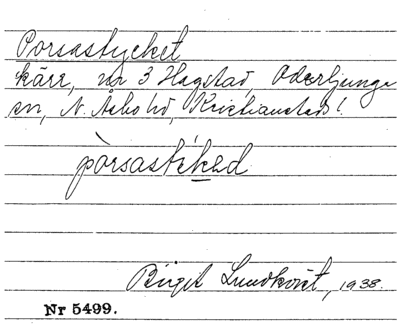 Porsastycket
kärr, nr 3 Hagstad, Oderljunga
sn, N. Åsbo hd, Kristianstads l.
pòrsastýkəd
Birgit Lundkvist, 1938.
Nr 5499.